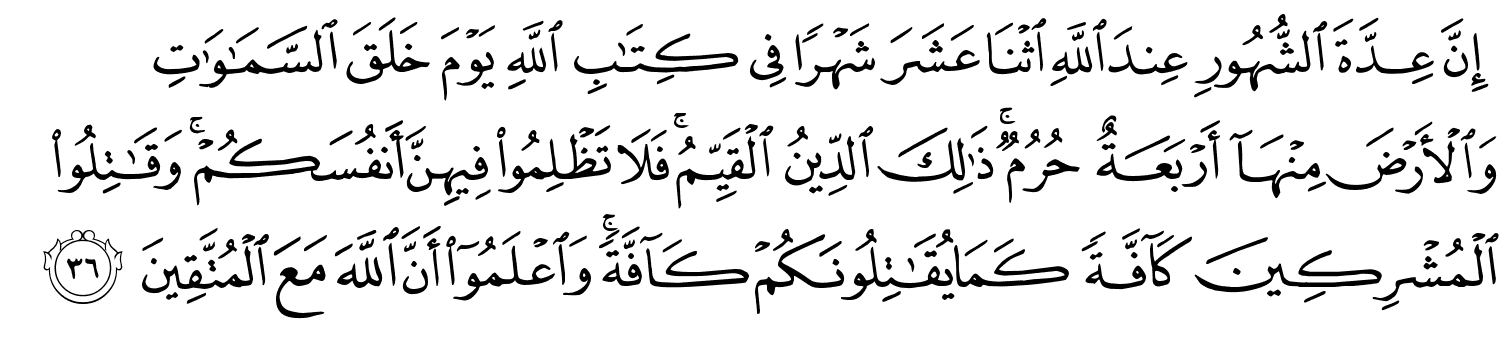 إِنَّ عِدَّةَ ٱلشُّهُورِ عِندَ ٱللَّهِ ٱثْنَا عَشَرَ شَهْرًا فِى كِتَٰبِ ٱللَّهِ يَوْمَ خَلَقَ ٱلسَّمَٰوَٰتِ
وَٱلْأَرْضَ مِنْهَآ أَرْبَعَةٌ حُرُمٌ ۚ ذَٰلِكَ ٱلدِّينُ ٱلْقَيِّمُ ۚ فَلَا تَظْلِمُوا۟ فِيهِنَّ أَنفُسَكُمْ ۚ وَقَٰتِلُوا۟
ٱلْمُشْرِكِينَ كَآفَّةً كَمَا يُقَٰتِلُونَكُمْ كَآفَّةً ۚ وَٱعْلَمُوٓا۟ أَنَّ ٱللَّهَ مَعَ ٱلْمُتَّقِينَ ٣٦